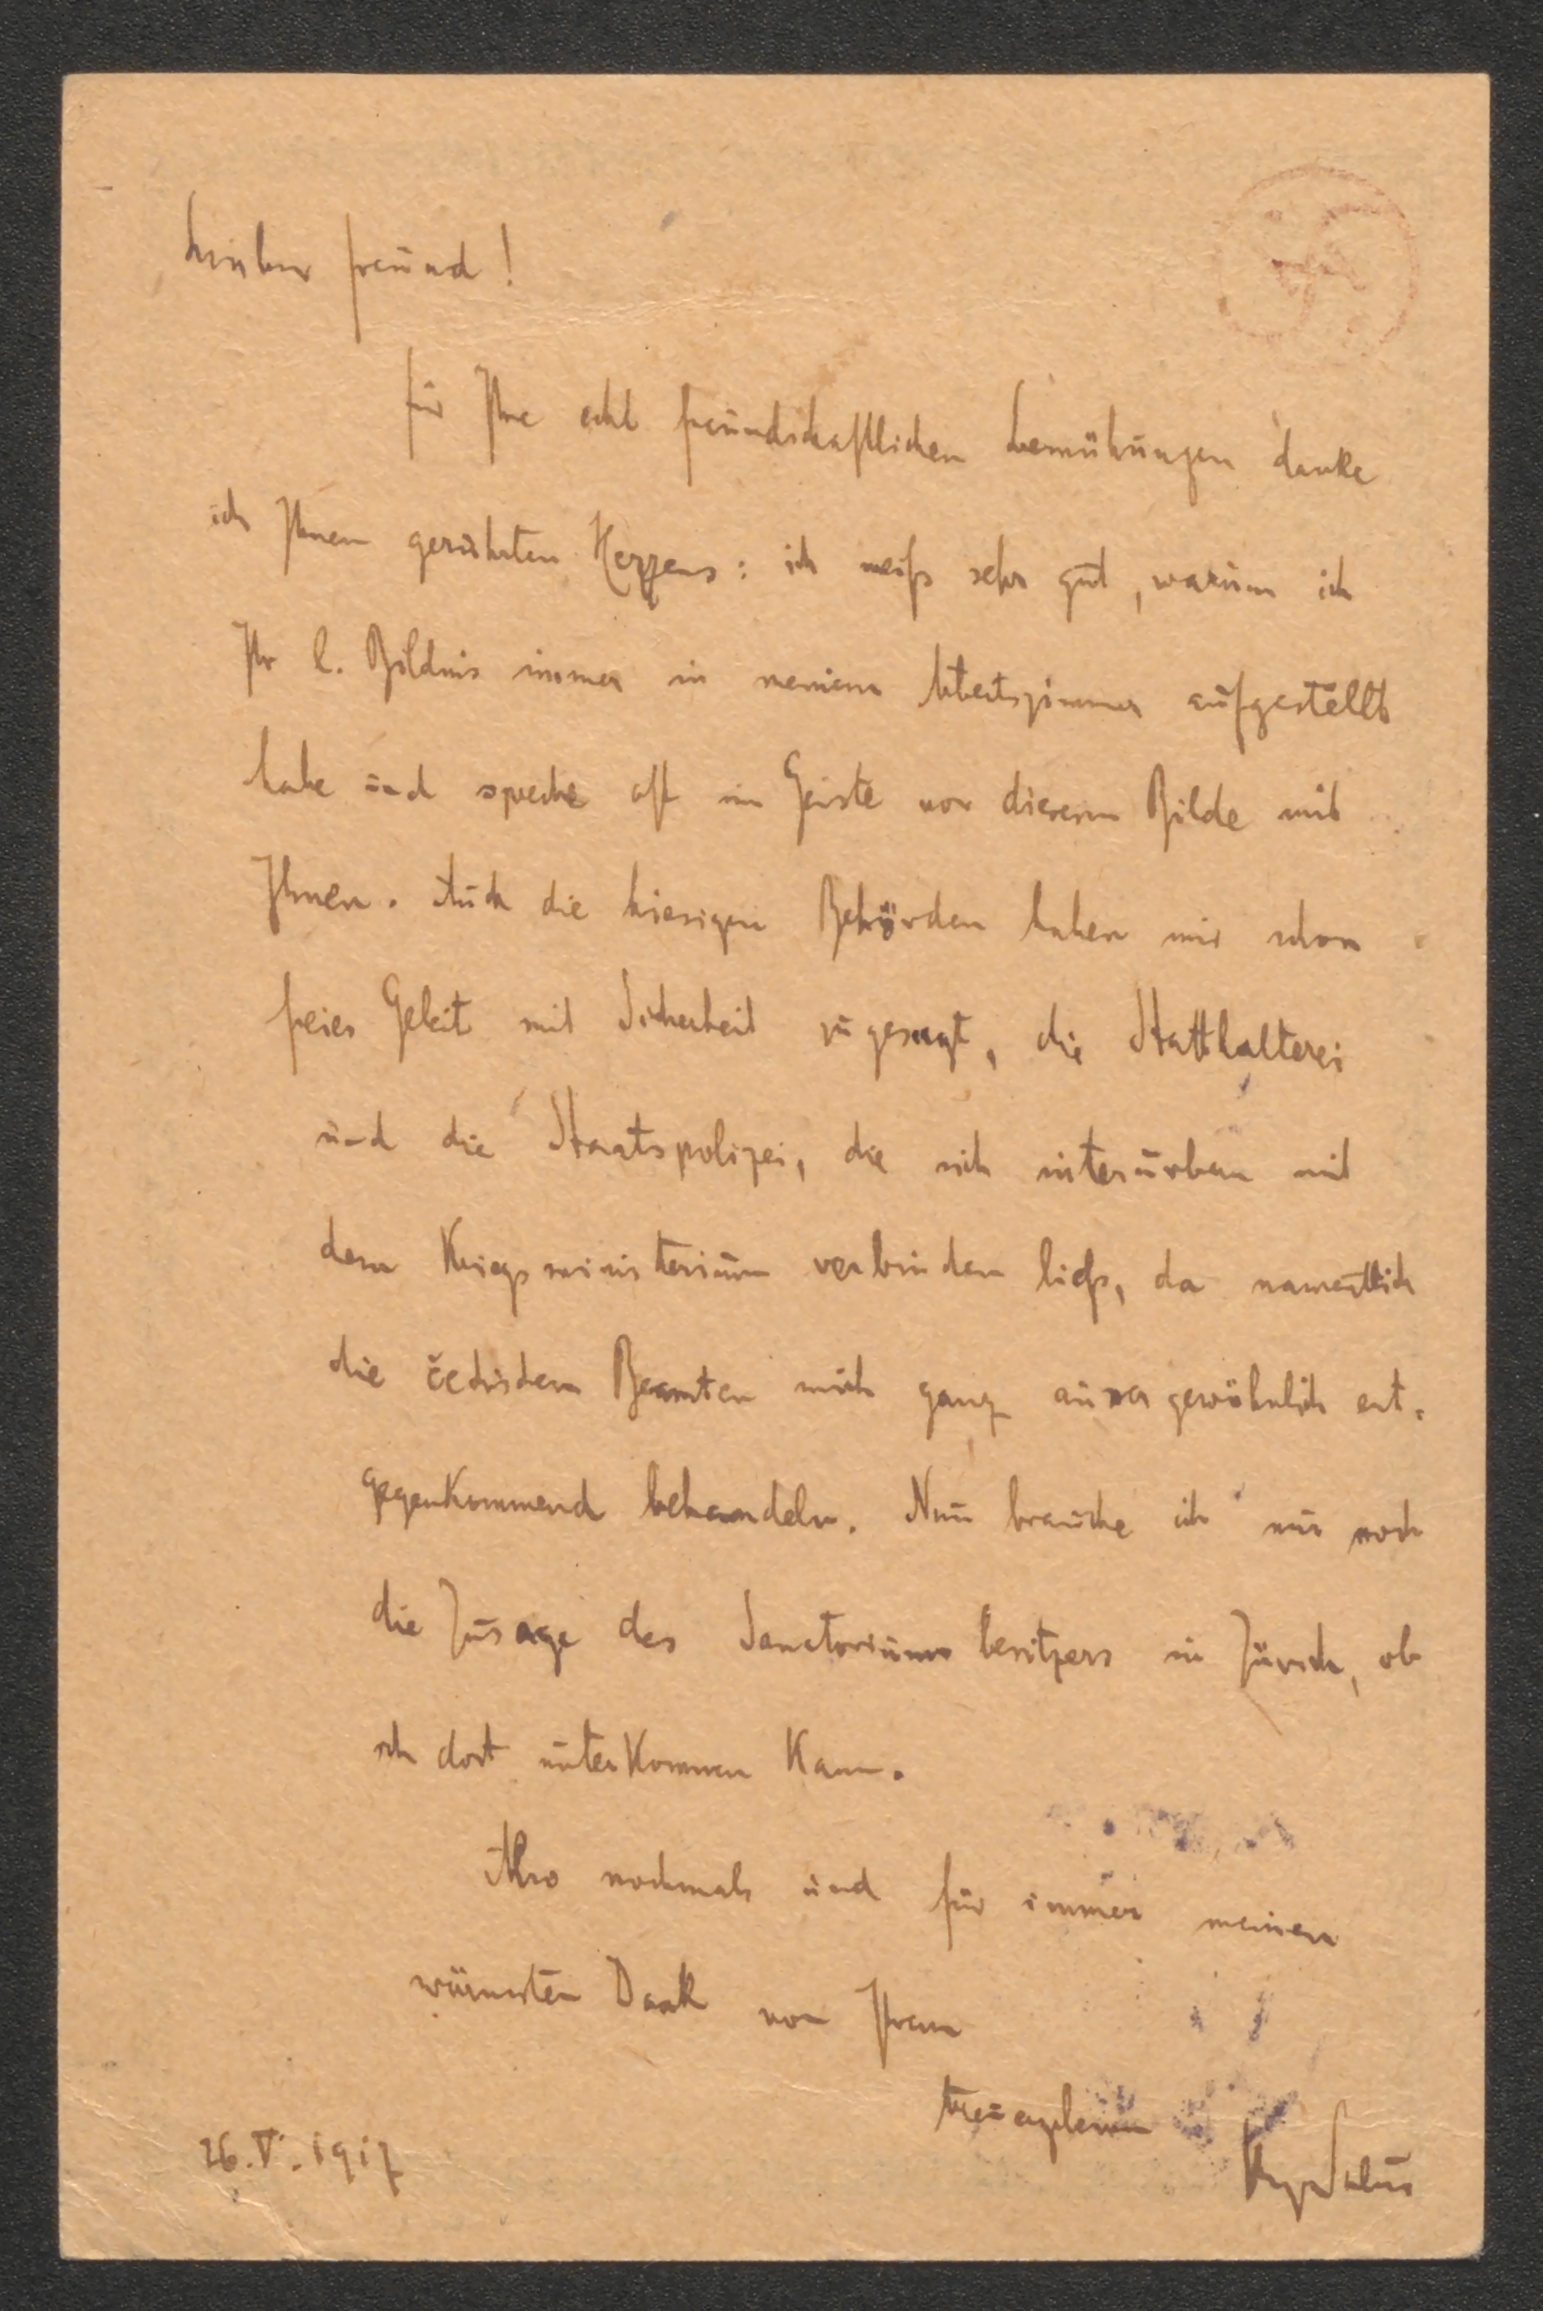 Lieber Freund!
Für Ihre echt freundschaftlichen Bemühungen danke
ich Ihnen gerührten Herzens: ich weiß sehr gut, warum ich
Ihr l. Bildnis immer in meinem Arbeitszimmer aufgestellt
habe und spreche oft im Geiste vor diesem Bilde mit
Ihnen. Auch die hiesigen Behörden haben mir schon
freies Geleit mit Sicherheit zugesagt, die Statthalterei
und die Staatspolizei, die sich interurban mit
dem Kriegsministerium verbinden ließ, da namentlich
die čechischen Beamten mich ganz ausergewöhnlich ent-
gegenkommend behandeln. Nun brauche ich nur noch
die Zusage des Sanatoriumsbesitzers in Zürich, ob
ich dort unterkommen kann.
Also nochmals und für immer meinen
wärmsten Dank von Ihrem
treuergebenen
Hugo Salus
26.V.1917